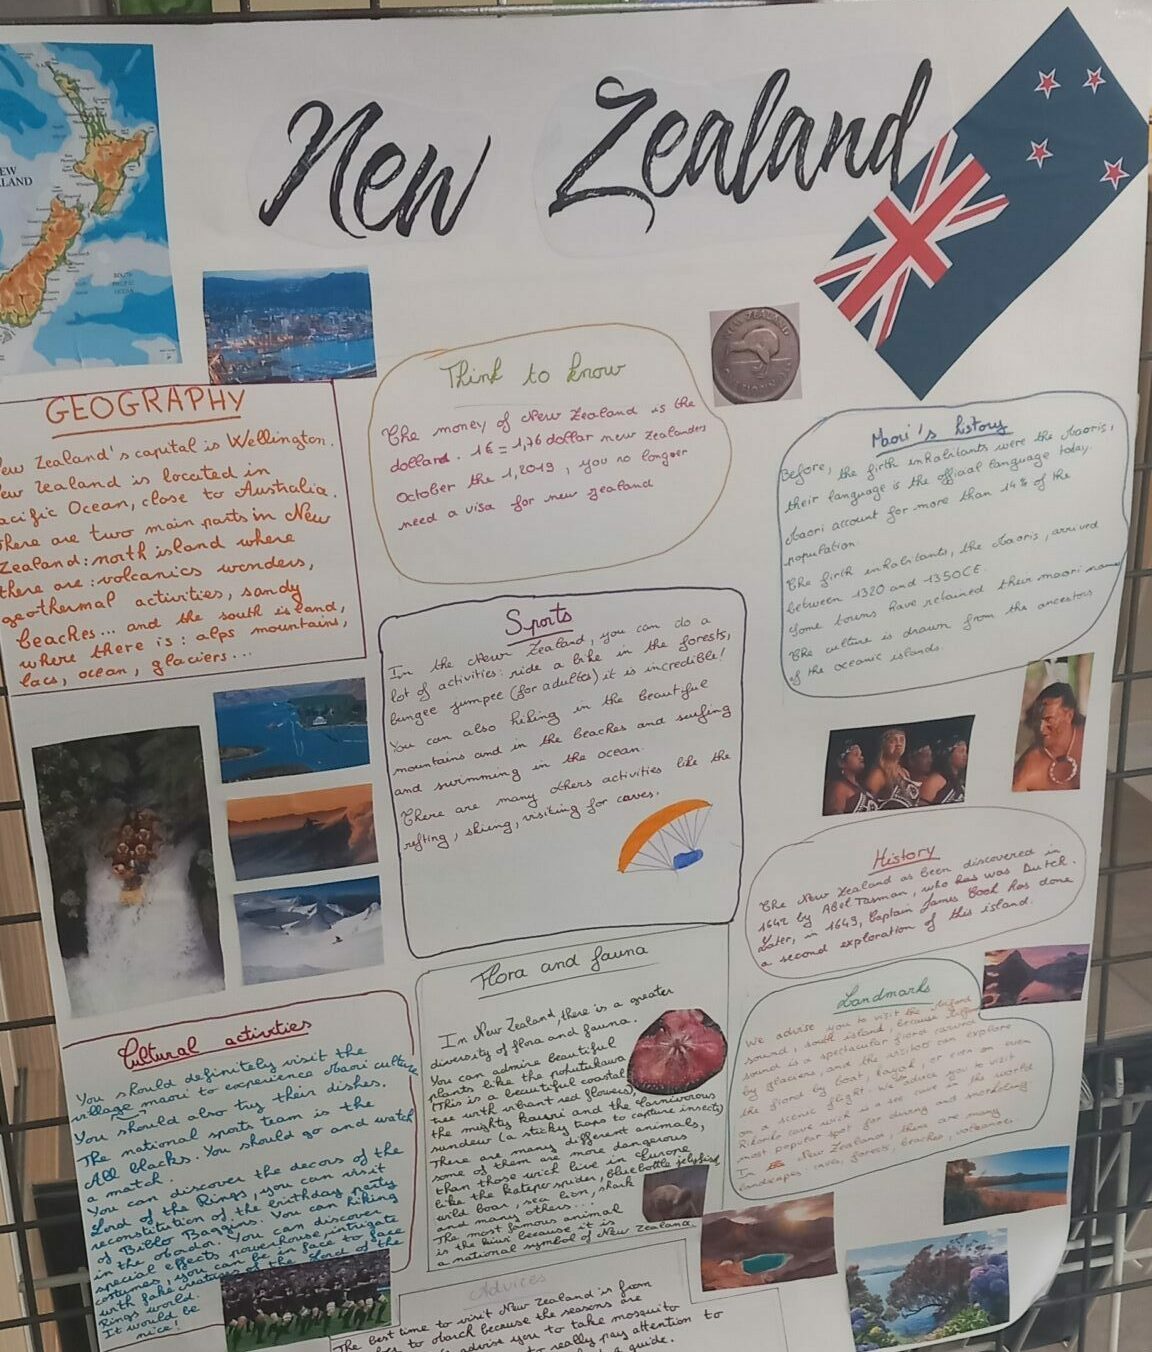 New Zealand
EW
LAND
SOUTH
PACIFIC
OCEAN
NEW ZEALAND
GEOGRAPHY
ew Zealand's capital is Wellington.
ew Zealand is located in
acific Ocean, close to Australia.
here are two main parts in New
Zealand: north island where
there are: volcanics wonders,
geothermal activities, sandy
beaches... and the south island,
where there is: alps mountains,
lacs, ocean, glaciers...
Think to know
The money of New Zealand is the
dollard. 1€ = 1,76 dollar new zealanders
October the 1, 2019, you no longer
need a visa for new zealand
Maori's history
Before, the firth inhabitants were the Maoris,
their language is the official language today.
Maori account for more than 14% of the
population.
The firth inhabitants, the Maoris, arrived
between 1320 and 1350CE.
Some towns have retained their maori name
The culture is drawn from the ancestors
of the oceanic islands.
Sports
In the New Zealand, you can do a
lot of activities: ride a bike in the forests,
bungee jumpee (for adultes) it is incredible!
You can also hiking in the beautiful
mountains and in the beaches and surfing
and swimming in the ocean.
There are many others activities like the
rafting, skiing, visiting for caves.
History
The New Zealand as been discovered in
1642 by Abel Tasman, who has was Dutch.
Later, in 1649, Captain James Cook has done
a second exploration of this island.
Cultural activities
You should definitely visit the
village maori to experience Maori culture
You should also try their dishes.
The national sports team is the
All Blacks. You should go and watch
a match.
You can discover the decors of the
Lord of the Rings, you can visit
reconstitution of the birthday party
of Bilbo Baggins. You can hiking
in the You can discover
special effects powerhouse, intrigate
costumes, you can be in face to face
with fake creatures of the Lord of the
Rings world.
It would be
nice!
Flora and fauna
In New Zealand, there is a greater
diversity of flora and fauna.
You can admire beautiful
plants like the pohutukawa
(This is a beautiful coastal
tree with vibrant red flowers),
the mighty kauri and the carnivorous
sundew (a sticky traps to capture insects)
There are many different animals,
some of them are more dangerous
than those wich live in Europe
like the katepo spider, bluebottle jellyfish
wild boar, sea lion, shark
and many others...
The most famous animal
is the kiwi because it is
a national symbol of New Zealand.
Landmarks
We advise you to visit the
sound, south island, because
sound is a spectacular fiord carved
by glaciers, and the visitors can explore
the fiord by boat, kayak, or even on
on a scenic flight. We advise you to visit
cave wich is a sea cave of the world
most popular spot for diving and snorkeling
In New Zealand, there are many
landscapes forests, beaches, volcanoes
Advices
The best time to visit New Zealand is from
to March because the seasons are
advise you to take mosquito
to really pay attention to
a guide.